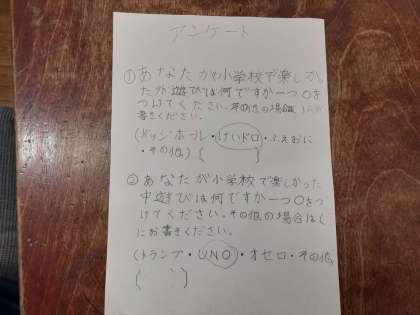 アンケート
①あなたが小学校で楽しかっ
た外遊びは何ですか一つ○を
つけてください。その他の場合は()にお
書きください。
(ドッジボール・けいドロ・ふえおに
・その他)( )
②あなたが小学校で楽しかった
中遊びは何ですか一つ○をつ
けてください。その他の場合は(
にお書きください。
(トランプ・UNO・オセロ・その他
( )